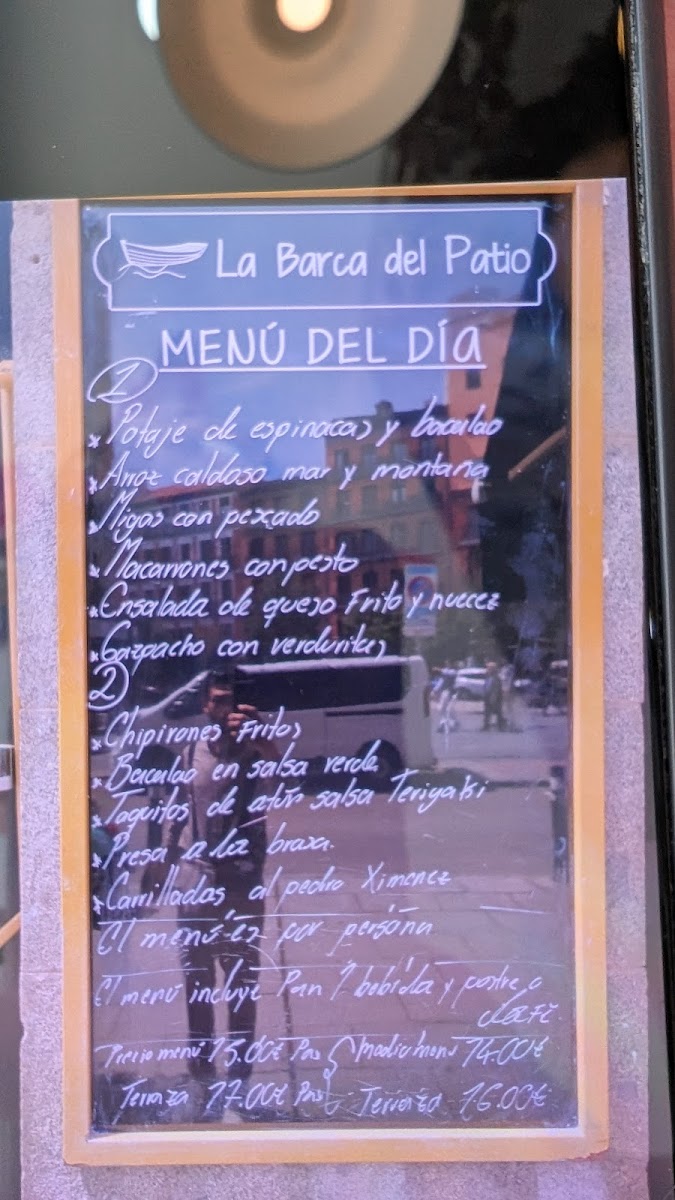 La Barca del Patio
MENÚ DEL DÍA
1
* Potaje de espinacas y bacalao
* Arroz caldoso mar y montaña
* Migas con pescado
* Macarrones con pesto
* Ensalada de queso Frito y nuecez
* Gazpacho con verduritas
2
* Chipirones Fritos
* Bacalao en salsa verde
* Taquitos de atún salsa Teriyaki
* Presa a la braxa.
* Carrilladas al pedro Ximenez
El menú es por persona
El menú incluye Pan 1 bebida y postre o
Café.
Precio menú 15.00€ Medio menú 14.00€
Terraza 17.00€ Terraza 16.00€